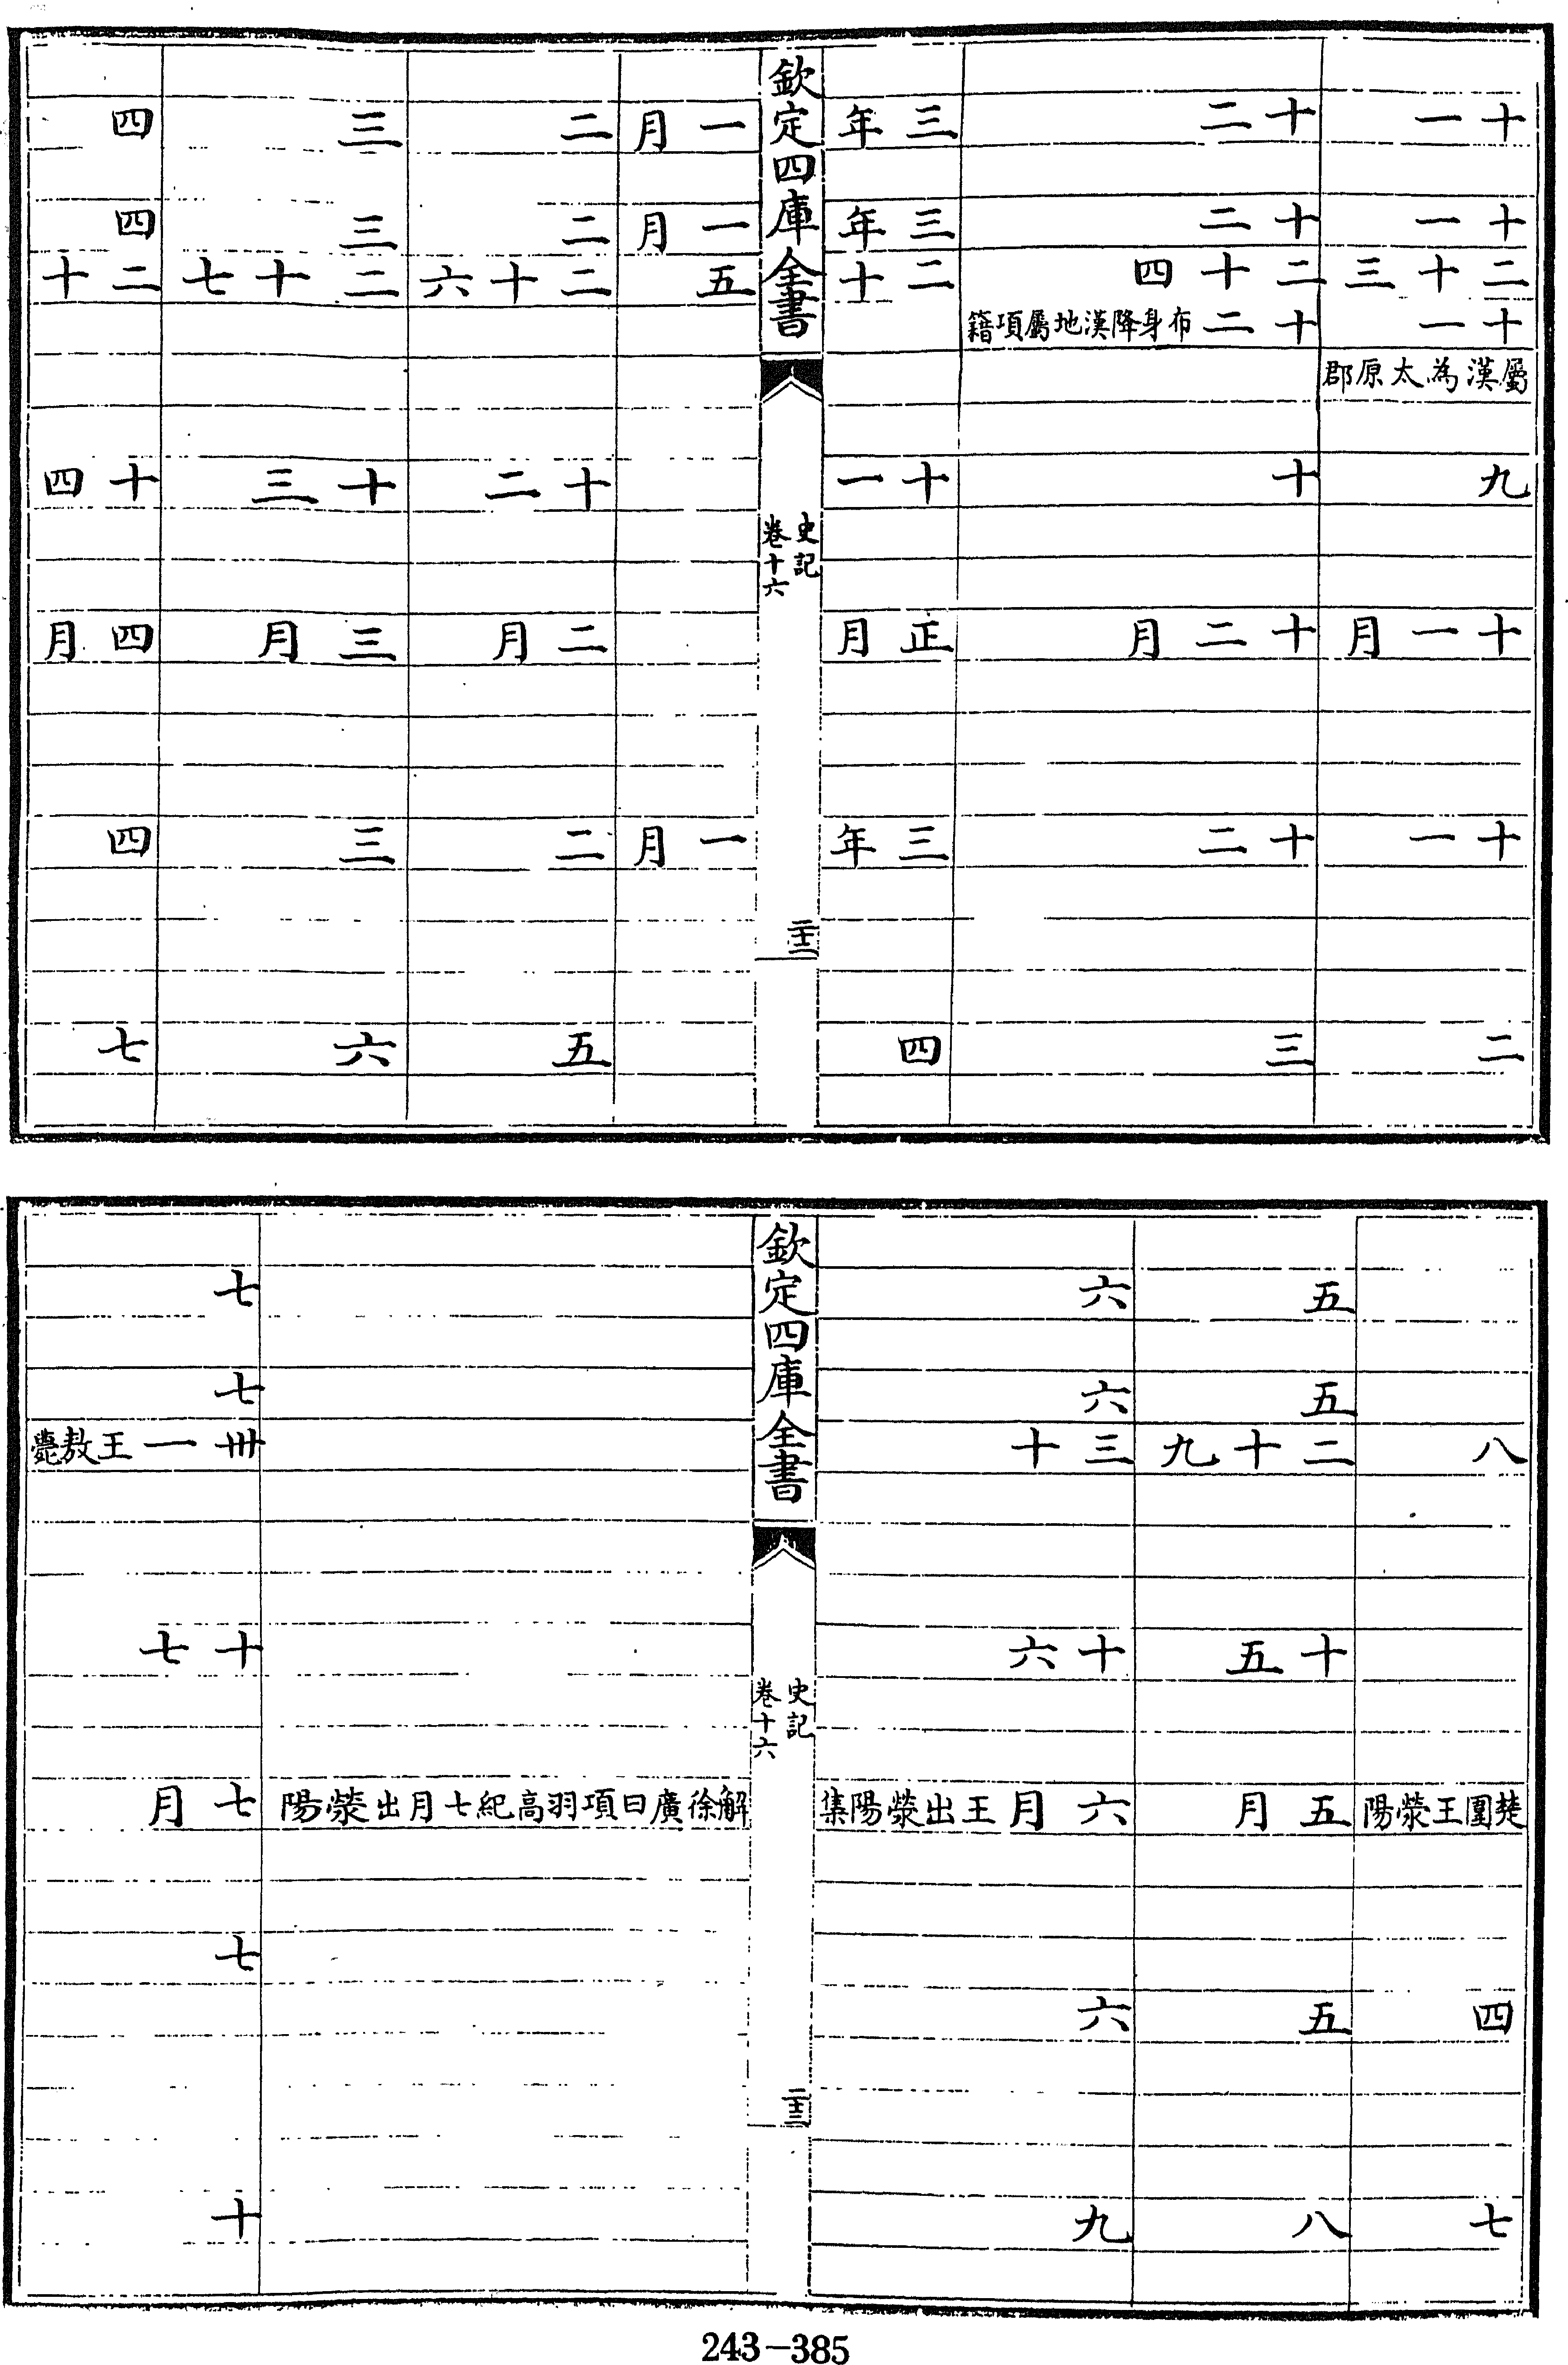 十一 十二 三年
十一 十二 三年
二十三 二十四 二十
十一 十二 布身降漢地屬項籍
屬漢為太原郡
九 十 十一
十一月 十二月 正月
十一 十二 三年
二 三 四
欽定四庫全書
史記
卷十六
二十二
一月 二 三 四
一月 二 三 四
五 二十六 二十七 二十
十二 十三 十四
二月 三月 四月
一月 二 三 四
五 六 七
五 六
五 六
八 二十九 三十
十五 十六
楚圍王滎陽 五月 六月 王出滎陽集
四 五 六
七 八 九
欽定四庫全書
史記
卷十六
二十三
七
七
卅一 王敖薨
十七
解徐廣曰項羽高紀七月出滎陽 七月
七
十
243-385